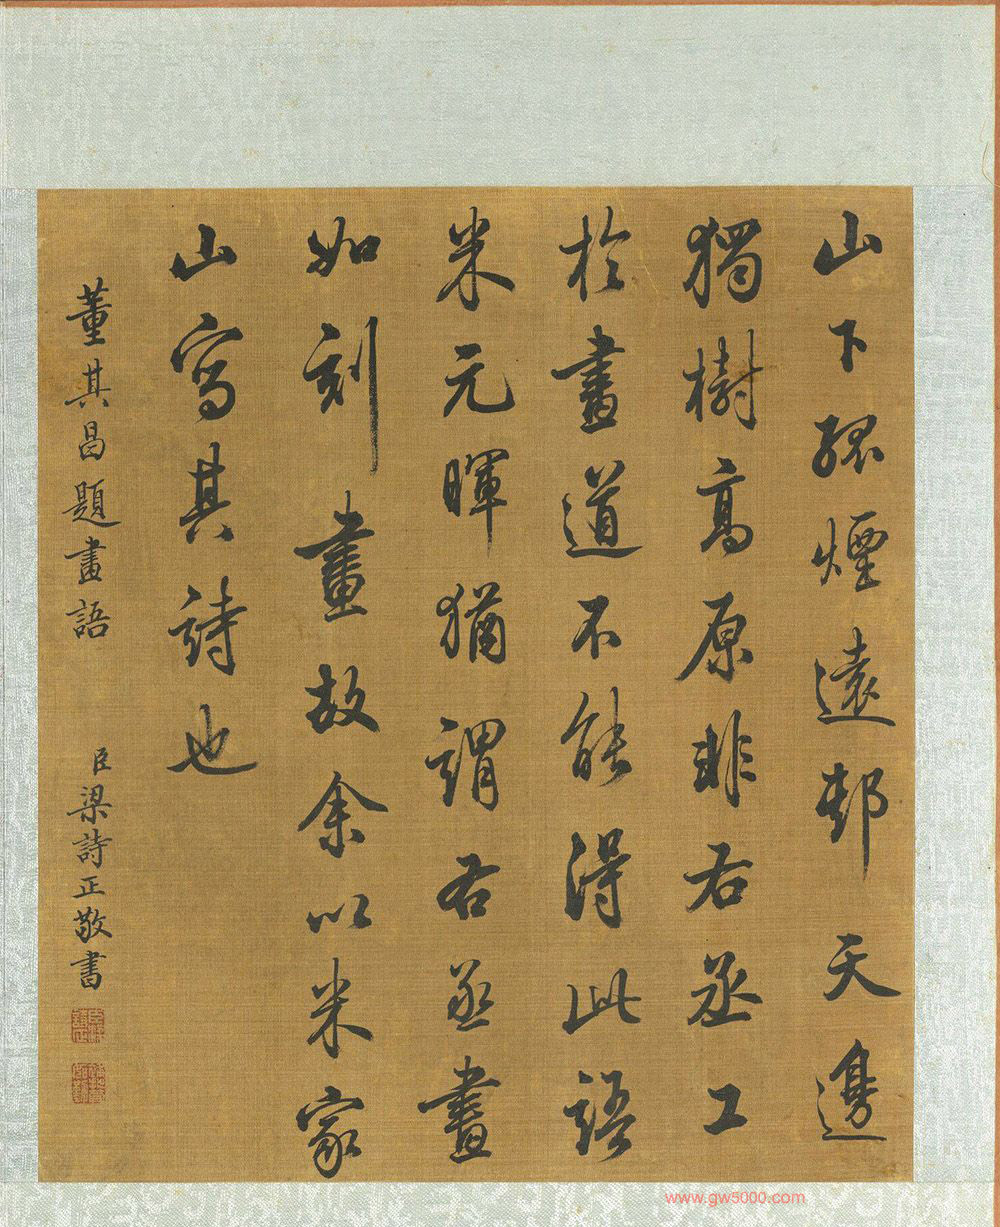 山下孤煙遠邨天邊
獨樹高原非右丞工
於畫道不能得此語
米元暉猶謂右丞畫
如刻畫故余以米家
山寫其詩也
董其昌題畫語
臣梁詩正敬書
www.gw5000.com